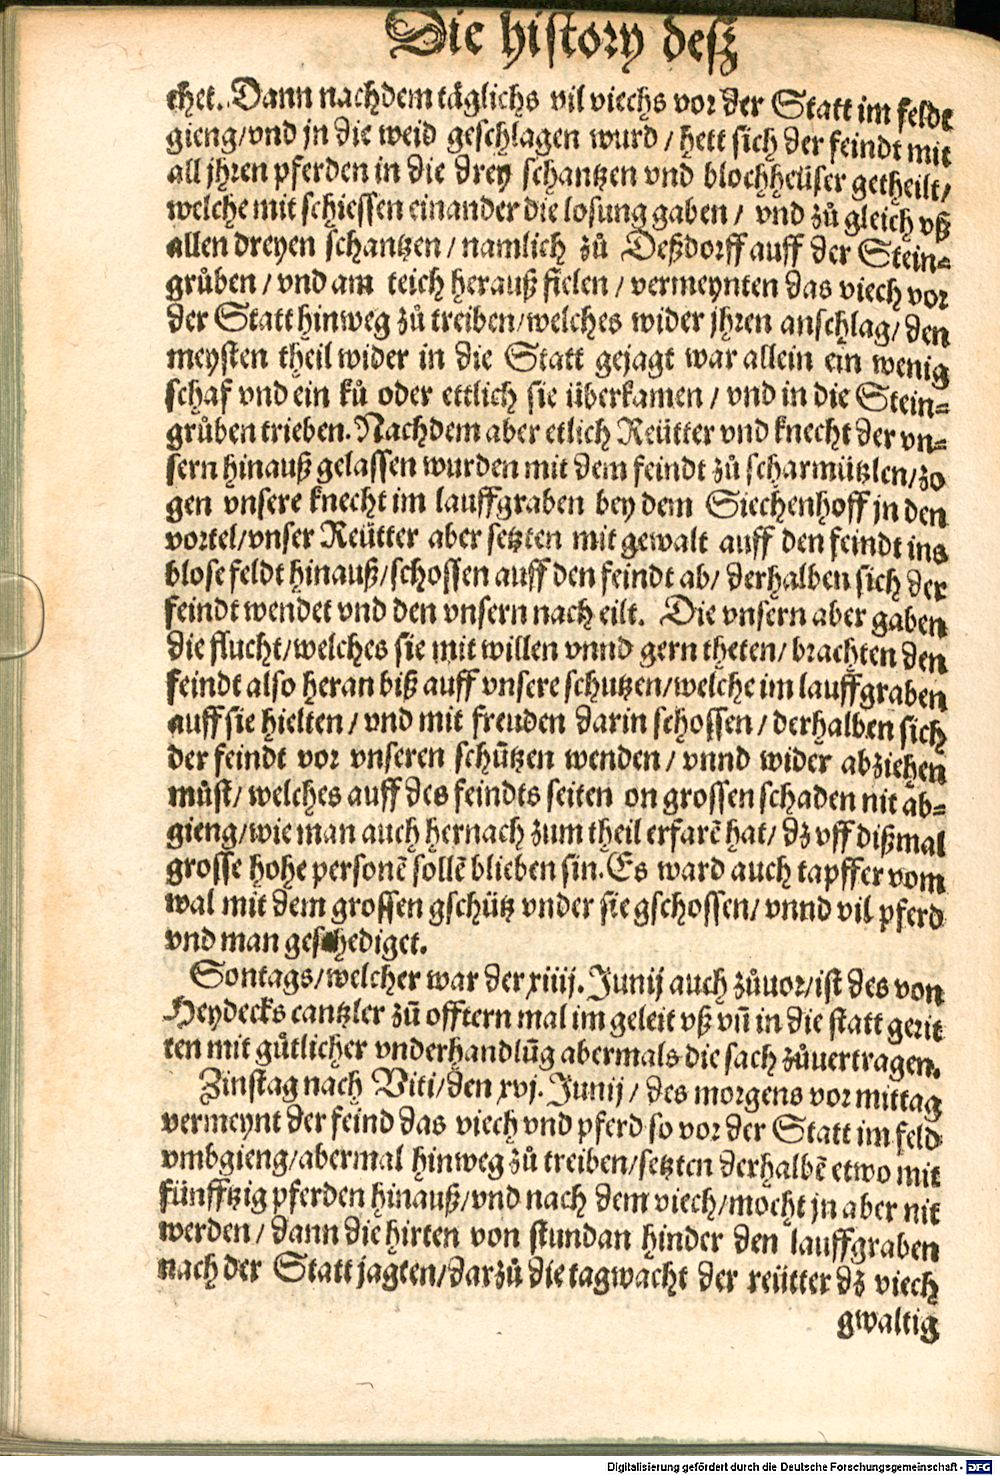 Die history desz
chet. Dann nachdem täglichs vil viechs vor der Statt im felde
gieng/vnd jn die weid geschlagen wurd/hett sich der feindt mit
all jhren pferden in die drey schantzen vnd blochheüser getheilt/
welche mit schiessen einander die losung gaben/ vnd zů gleich vß
allen dreyen schantzen/namlich zů Deßdorff auff der Stein⸗
grůben/vnd am teich herauß fielen/vermeynten das viech vor
der Statt hinweg zů treiben/welches wider jhren anschlag/den
meysten theil wider in die Statt gejagt war allein ein wenig
schaf vnd ein ků oder ettlich sie überkamen/vnd in die Stein⸗
grůben trieben. Nachdem aber etlich Reütter vnd knecht der vn⸗
sern hinauß gelassen wurden mit dem feindt zů scharmützlen/zo
gen vnsere knecht im lauffgraben bey dem Siechenhoff jn den
vortel/vnser Reütter aber setzten mit gewalt auff den feindt ins
blose feldt hinauß/schossen auff den feindt ab/ derhalben sich der
feindt wendet vnd den vnsern nach eilt. Die vnsern aber gaben
die flucht/welches sie mit willen vnnd gern theten/brachten den
feindt also heran biß auff vnsere schutzen/welche im lauffgraben
auff sie hielten/vnd mit freuden darin schossen/derhalben sich
der feindt vor vnseren schützen wenden/vnnd wider abziehen
můst/welches auff des feindts seiten on grossen schaden nit ab⸗
gieng/wie man auch hernach zum theil erfarē hat/dz vff dißmal
grosse hohe personē sollē blieben sin. Es ward auch tapffer vom
wal mit dem grossen gschütz vnder sie gschossen/vnnd vil pferd
vnd man geschediget.
Sontags/welcher war der xiiij. Junij auch zůuor/ist des von
Heydecks cantzler zů offtern mal im geleit vß vn̄ in die statt gerit
ten mit gůtlicher vnderhandlūg abermals die sach zůuertragen.
Zinstag nach Viti/den xvj. Junij/des morgens vor mittag
vermeynt der feind das viech vnd pferd so vor der Statt im feld
vmbgieng/abermal hinweg zů treiben/setzten derhalbē etwo mit
fünfftzig pferden hinauß/vnd nach dem viech/mocht jn aber nit
werden/dann die hirten von stundan hinder den lauffgraben
nach der Statt jagten/darzů die tagwacht der reütter dz viech
gwaltig
Digitalisierung gefördert durch die Deutsche Forschungsgemeinschaft - DFG